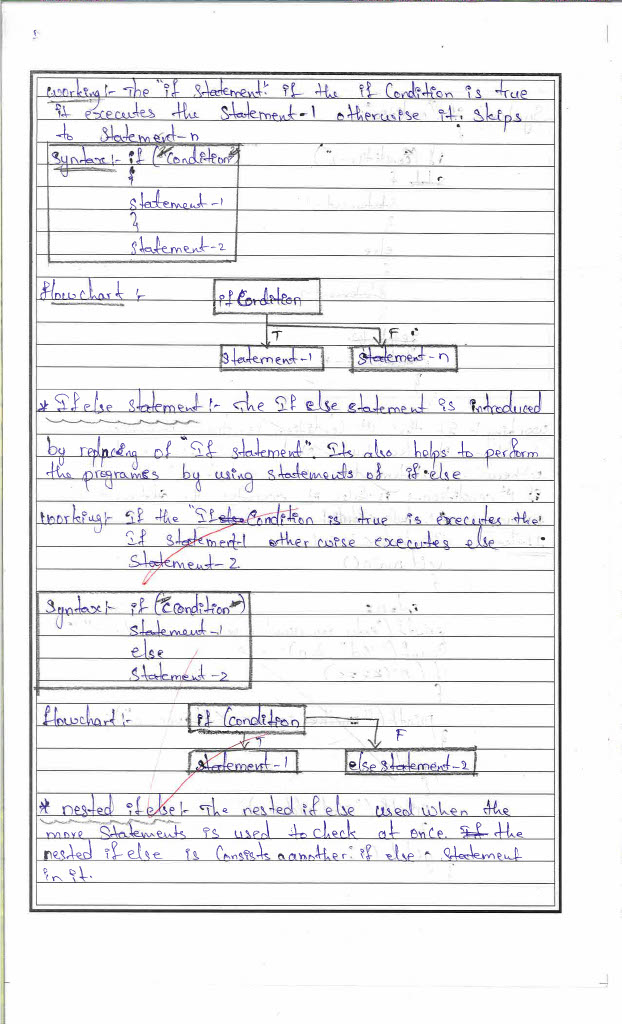 working:- The "if Statement" if the if Condition is true
it executes the Statement-1 otherwise it skips
to Statement-n
Syntax:- if ("Condition")
{
Statement-1
}
Statement-2
Flowchart :-
if Condition
T
F
Statement-1
Statement-n
* If else Statement :- The If else statement is introduced
by replacing of "If statement". Its also helps to perform
the programes by using statements of if else
working:- If the "If else Condition is true is executes the
If Statement-1 other wise executes else
Statement-2.
Syntax:- if ("Condition")
Statement-1
else
Statement-2
flowchart :-
if (condition
T
F
Statement-1
else statement-2
* nested if else:- The nested if else used when the
more Statements is used to check at once. If the
nested if else is Consists a another if else Statement
in it.